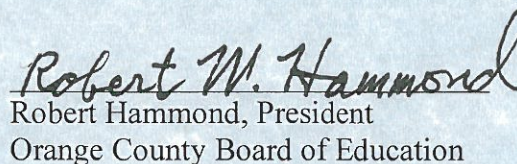 Robert M. Hammond
Robert Hammond, President
Orange County Board of Education